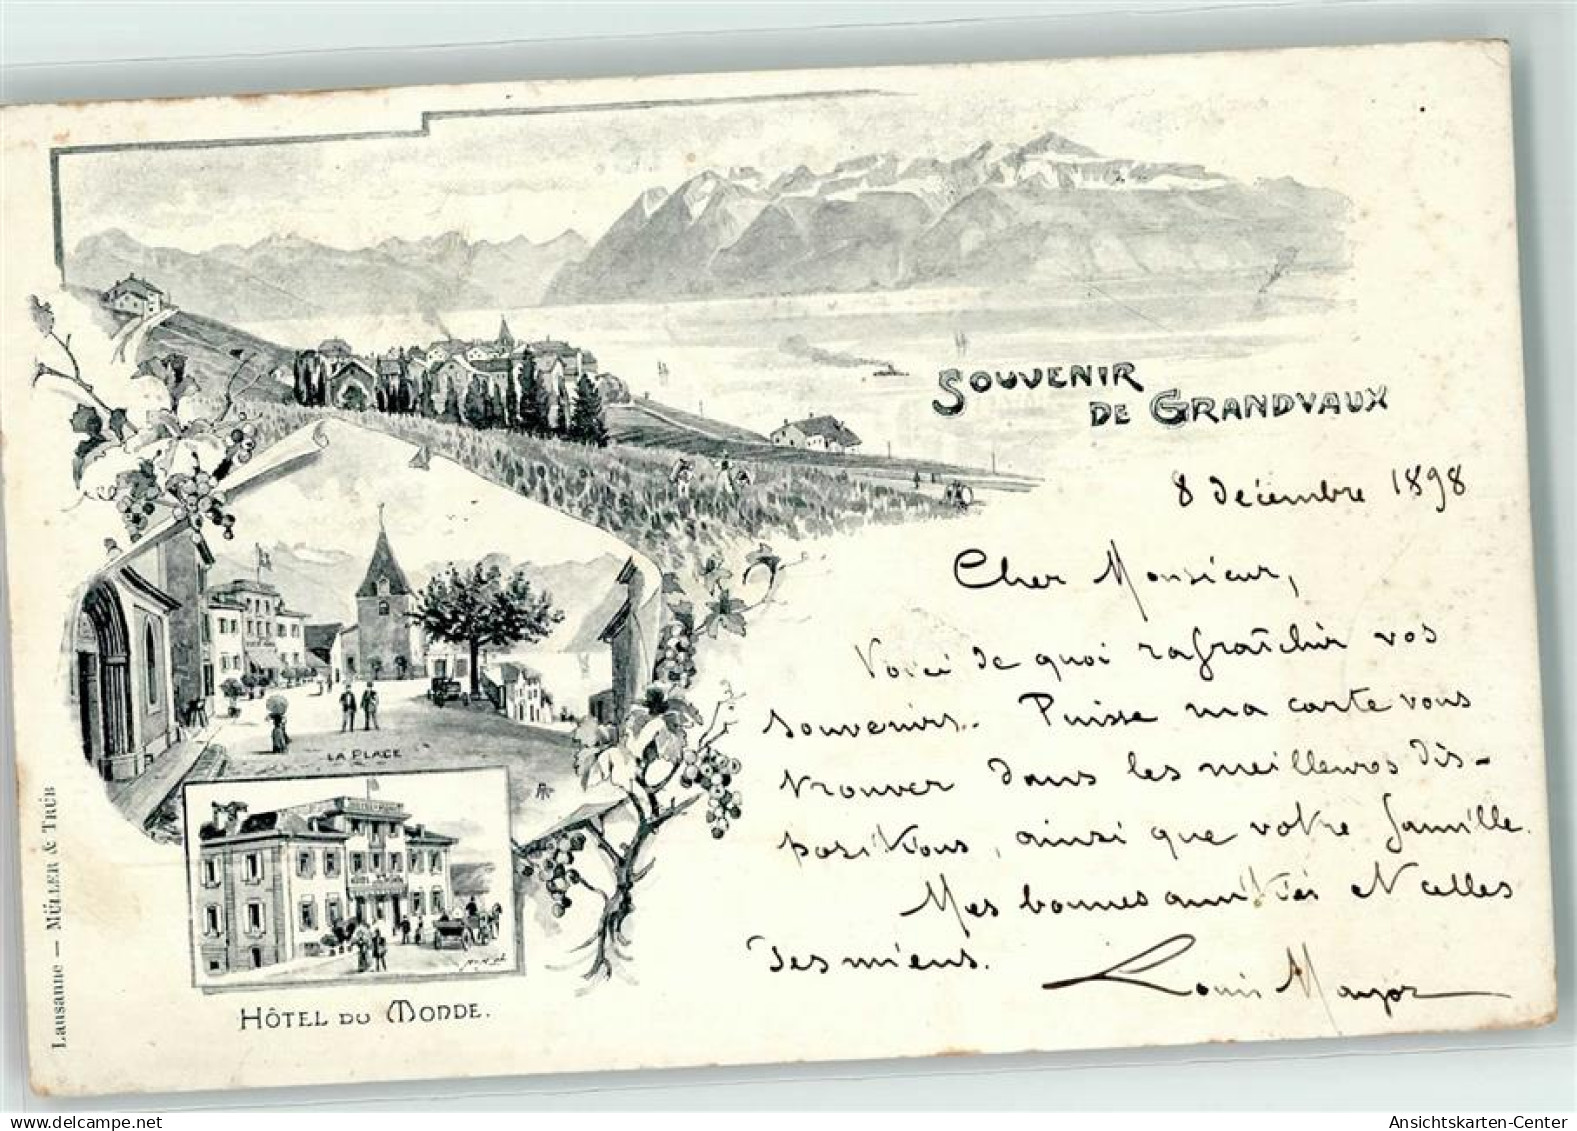 SOUVENIR
DE GRANDVAUX
8 décembre 1898
Cher Monsieur,
Voici de quoi rafraîchir vos
souvenirs. Puisse ma carte vous
trouver dans les meilleures dis-
positions, ainsi que votre famille.
Mes bonnes amitiés et celles
des miens.
Louis
LA PLACE
HÔTEL DU MONDE.
Lausanne — MÜLLER & TRÜB
www.delcampe.net
maxi68
Ansichtskarten-Center